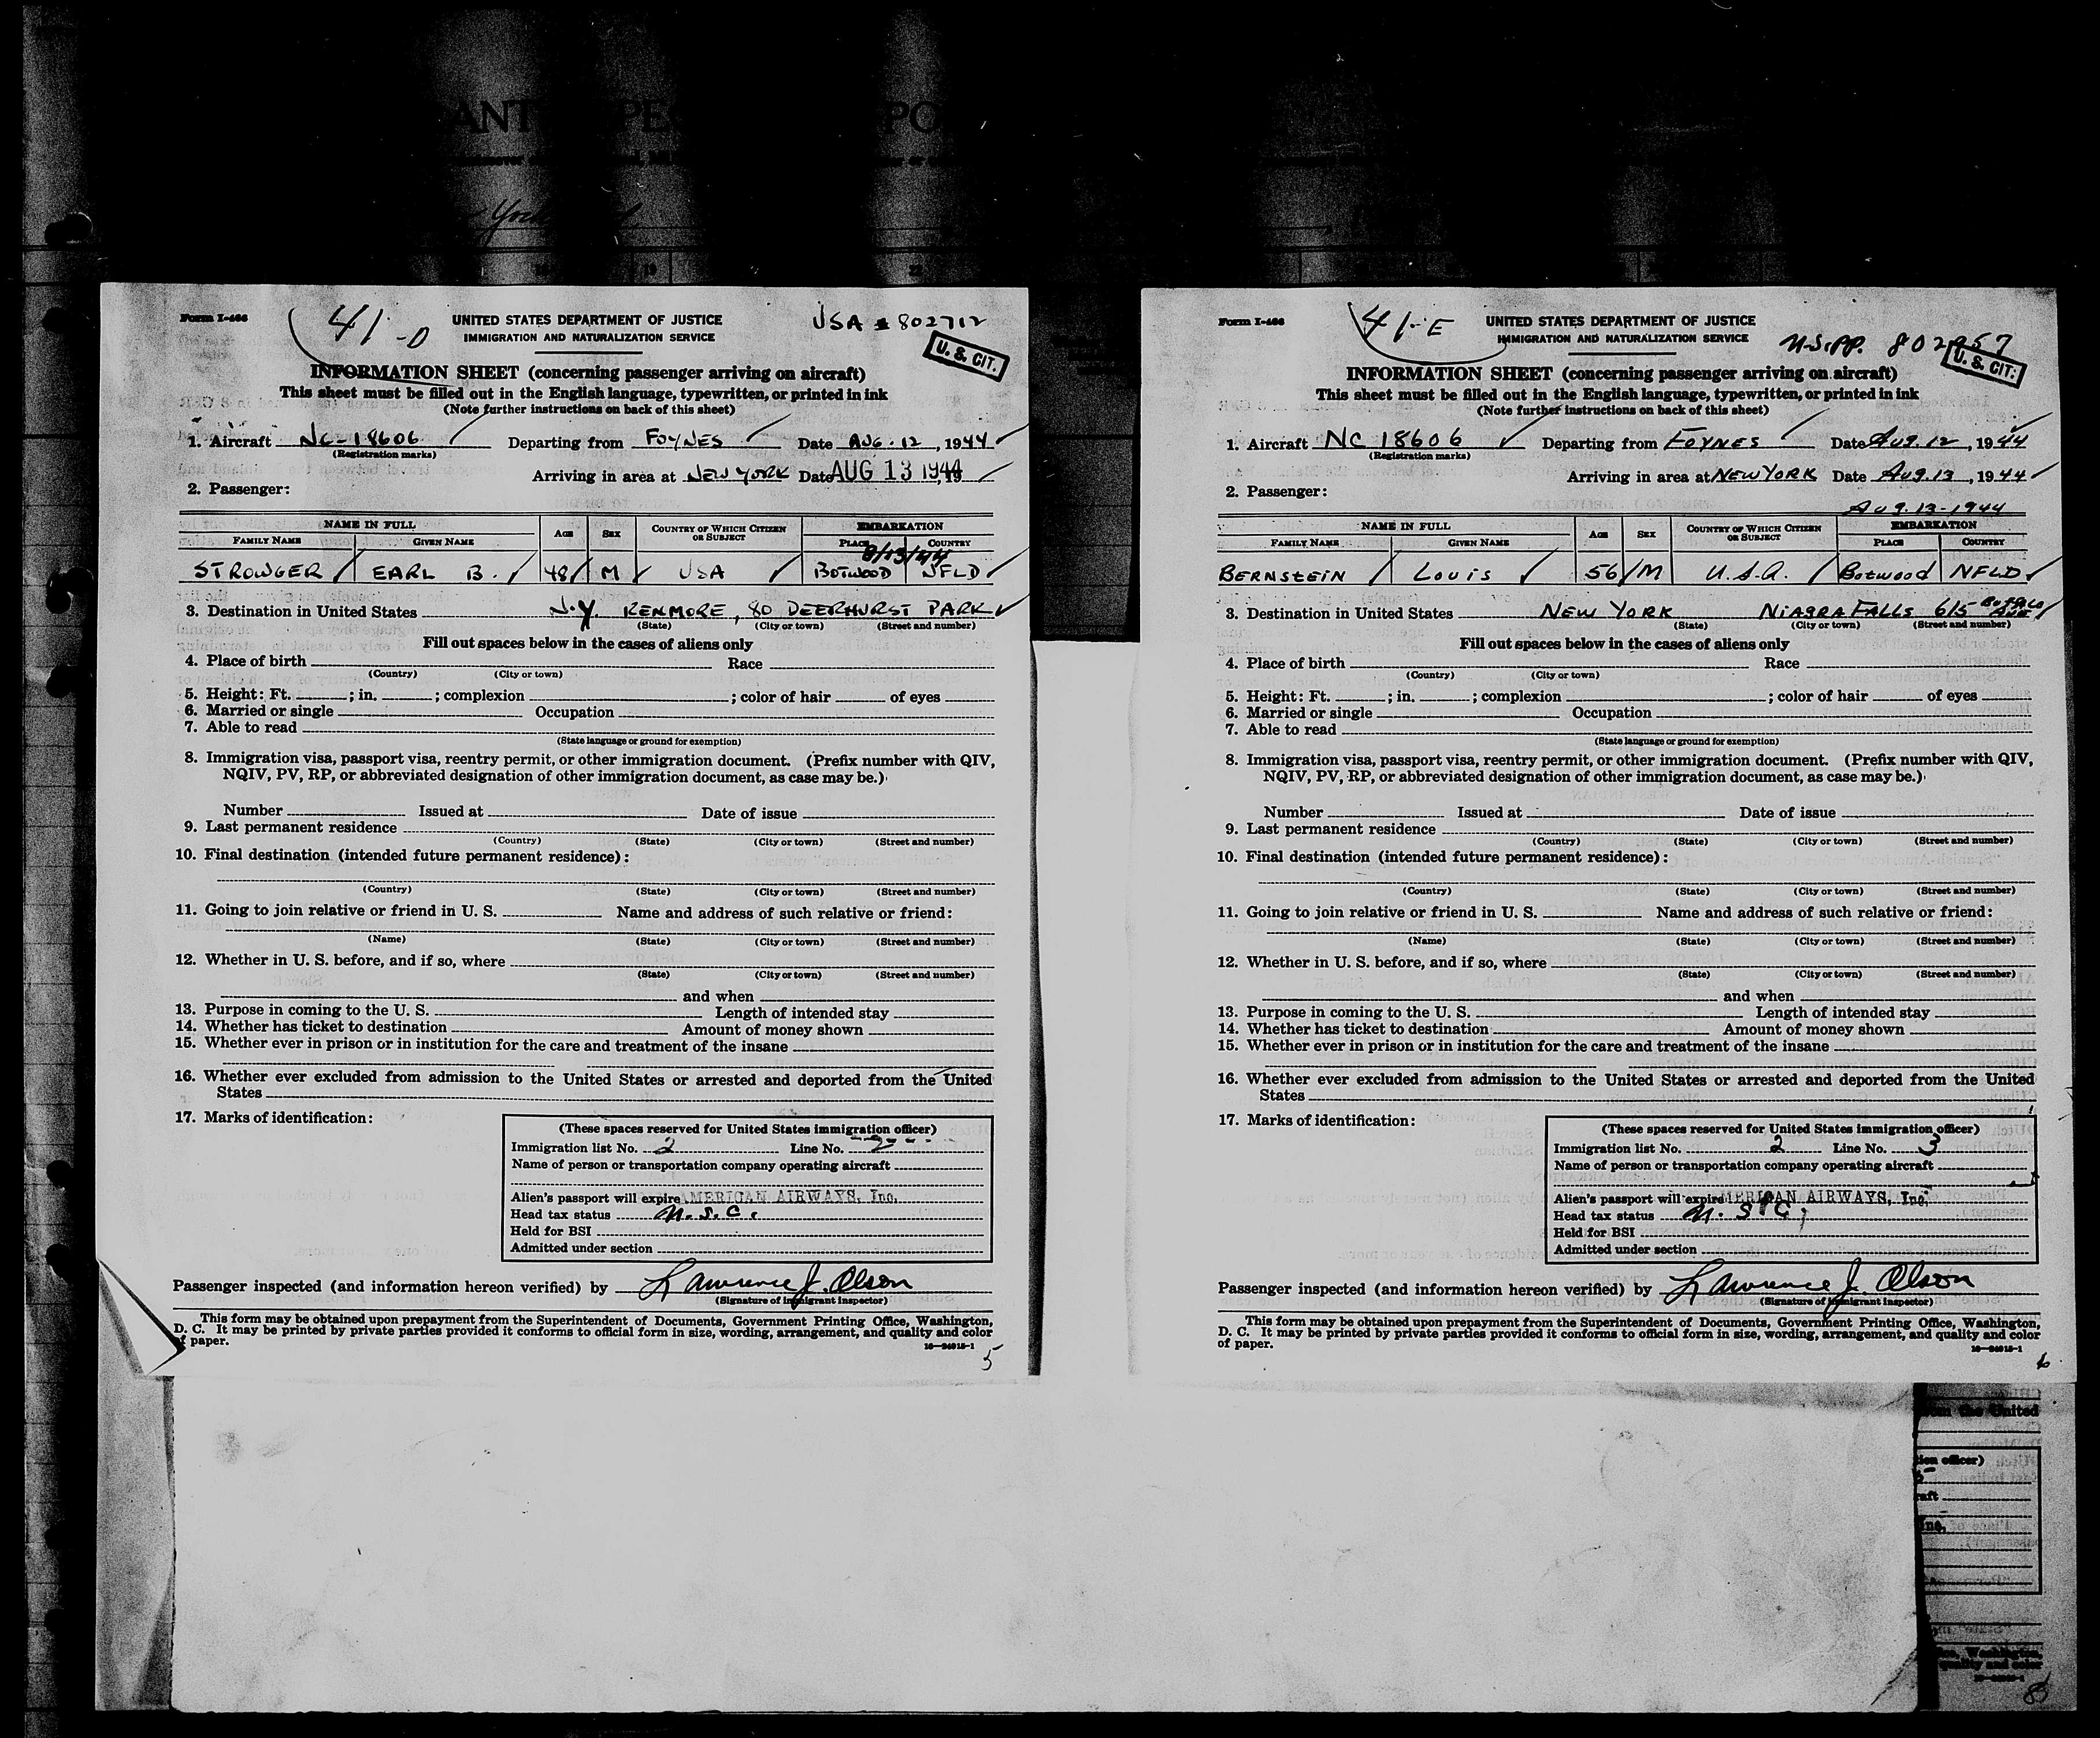 Form I-466
41-D
UNITED STATES DEPARTMENT OF JUSTICE
IMMIGRATION AND NATURALIZATION SERVICE
USA # 802712
U. S. CIT.
INFORMATION SHEET (concerning passenger arriving on aircraft)
This sheet must be filled out in the English language, typewritten, or printed in ink
(Note further instructions on back of this sheet)
1. Aircraft NC-18606 Departing from FOYNES Date AUG. 12, 1944
(Registration marks)
Arriving in area at NEW YORK Date AUG 13 1944
2. Passenger:
NAME IN FULL AGE SEX COUNTRY OF WHICH CITIZEN OR SUBJECT EMBARKATION
FAMILY NAME GIVEN NAME PLACE COUNTRY
8/13/44
STROWGER EARL B. 48 M USA BOTWOOD NFLD
3. Destination in United States N.Y. KENMORE, 80 DEERHURST PARK
(State) (City or town) (Street and number)
Fill out spaces below in the cases of aliens only
4. Place of birth Race
(Country) (City or town)
5. Height: Ft. ; in. ; complexion ; color of hair of eyes
6. Married or single Occupation
7. Able to read
(State language or ground for exemption)
8. Immigration visa, passport visa, reentry permit, or other immigration document. (Prefix number with QIV,
NQIV, PV, RP, or abbreviated designation of other immigration document, as case may be.)
Number Issued at Date of issue
9. Last permanent residence
(Country) (State) (City or town) (Street and number)
10. Final destination (intended future permanent residence):
(Country) (State) (City or town) (Street and number)
11. Going to join relative or friend in U. S. Name and address of such relative or friend:
(Name) (State) (City or town) (Street and number)
12. Whether in U. S. before, and if so, where
(State) (City or town) (Street and number)
and when
13. Purpose in coming to the U. S. Length of intended stay
14. Whether has ticket to destination Amount of money shown
15. Whether ever in prison or in institution for the care and treatment of the insane
16. Whether ever excluded from admission to the United States or arrested and deported from the United
States
17. Marks of identification:
(These spaces reserved for United States immigration officer)
Immigration list No. 2 Line No. 2
Name of person or transportation company operating aircraft
Alien's passport will expire AMERICAN AIRWAYS, Inc.
Head tax status U.S.C.
Held for BSI
Admitted under section
Passenger inspected (and information hereon verified) by Lawrence J. Olson
(Signature of immigrant inspector)
This form may be obtained upon prepayment from the Superintendent of Documents, Government Printing Office, Washington,
D. C. It may be printed by private parties provided it conforms to official form in size, wording, arrangement, and quality and color
of paper.
5
Form I-466
41-E
UNITED STATES DEPARTMENT OF JUSTICE
IMMIGRATION AND NATURALIZATION SERVICE
U.S. PP.
U. S. CIT.
INFORMATION SHEET (concerning passenger arriving on aircraft)
This sheet must be filled out in the English language, typewritten, or printed in ink
(Note further instructions on back of this sheet)
1. Aircraft NC 18606 Departing from FOYNES Date Aug. 12, 1944
(Registration marks)
Arriving in area at NEW YORK Date Aug. 13, 1944
2. Passenger:
Aug. 13-1944
NAME IN FULL AGE SEX COUNTRY OF WHICH CITIZEN OR SUBJECT EMBARKATION
FAMILY NAME GIVEN NAME PLACE COUNTRY
BERNSTEIN LOUIS 56 M U.S.A. Botwood NFLD
3. Destination in United States NEW YORK NIAGRA FALLS 615 BUFFALO AVE
(State) (City or town) (Street and number)
Fill out spaces below in the cases of aliens only
4. Place of birth Race
(Country) (City or town)
5. Height: Ft. ; in. ; complexion ; color of hair of eyes
6. Married or single Occupation
7. Able to read
(State language or ground for exemption)
8. Immigration visa, passport visa, reentry permit, or other immigration document. (Prefix number with QIV,
NQIV, PV, RP, or abbreviated designation of other immigration document, as case may be.)
Number Issued at Date of issue
9. Last permanent residence
(Country) (State) (City or town) (Street and number)
10. Final destination (intended future permanent residence):
(Country) (State) (City or town) (Street and number)
11. Going to join relative or friend in U. S. Name and address of such relative or friend:
(Name) (State) (City or town) (Street and number)
12. Whether in U. S. before, and if so, where
(State) (City or town) (Street and number)
and when
13. Purpose in coming to the U. S. Length of intended stay
14. Whether has ticket to destination Amount of money shown
15. Whether ever in prison or in institution for the care and treatment of the insane
16. Whether ever excluded from admission to the United States or arrested and deported from the United
States
17. Marks of identification:
(These spaces reserved for United States immigration officer)
Immigration list No. 2 Line No. 3
Name of person or transportation company operating aircraft
Alien's passport will expire MERICAN AIRWAYS, Inc.
Head tax status U.S.C.
Held for BSI
Admitted under section
Passenger inspected (and information hereon verified) by Lawrence J. Olson
(Signature of immigrant inspector)
This form may be obtained upon prepayment from the Superintendent of Documents, Government Printing Office, Washington,
D. C. It may be printed by private parties provided it conforms to official form in size, wording, arrangement, and quality and color
of paper.
6